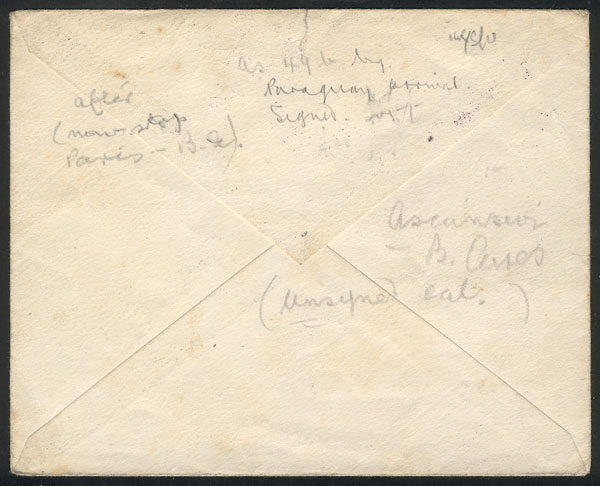 as 49 b by
Paraguay arrival.
Signed.
after
(non-stop
Paris - B.A).
- B. Aires
(Unsigned cat. )